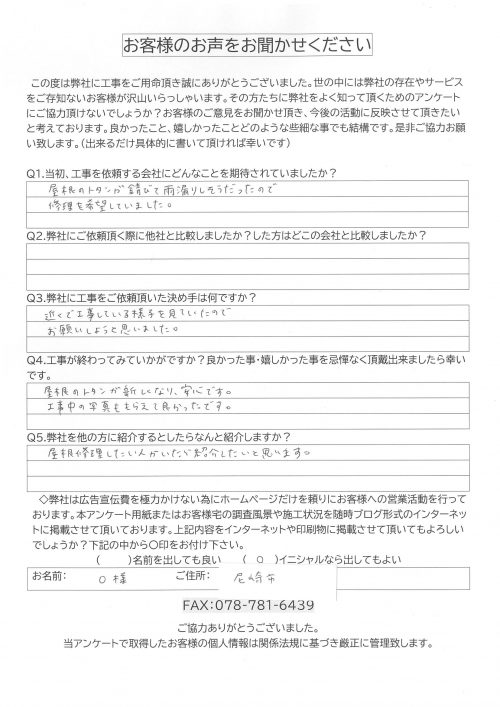 お客様のお声をお聞かせください
この度は弊社に工事をご用命頂き誠にありがとうございました。世の中には弊社の存在やサービス
をご存知ないお客様が沢山いらっしゃいます。その方たちに弊社をよく知って頂くためのアンケート
にご協力頂けないでしょうか？お客様のご意見をお聞かせ頂き、今後の活動に反映させて頂きたい
と考えております。良かったこと、嬉しかったことどのような些細な事でも結構です。是非ご協力お願
い致します。（出来るだけ具体的に書いて頂ければ幸いです）
Q1.当初、工事を依頼する会社にどんなことを期待されていましたか？
屋根のトタンが錆びて雨漏りしそうだったので
修理を希望していました。
Q2.弊社にご依頼頂く際に他社と比較しましたか？した方はどこの会社と比較しましたか？
Q3.弊社に工事をご依頼頂いた決め手は何ですか？
近くで工事している様子を見ていたので
お願いしようと思いました。
Q4.工事が終わってみていかがですか？良かった事・嬉しかった事を忌憚なく頂戴出来ましたら幸い
です。
屋根のトタンが新しくなり、安心です。
工事中の写真ももらえて良かったです。
Q5.弊社を他の方に紹介するとしたらなんと紹介しますか？
屋根修理したい人がいたら紹介したいと思います。
◇弊社は広告宣伝費を極力かけない為にホームページだけを頼りにお客様への営業活動を行って
おります。本アンケート用紙またはお客様宅の調査風景や施工状況を随時ブログ形式のインターネッ
トに掲載させて頂いております。上記内容をインターネットや印刷物に掲載させて頂いてもよろしい
でしょうか？下記の中から〇印をお付け下さい。
（　　）名前を出しても良い　（ O ）イニシャルなら出してもよい
お名前： O 様　ご住所： 尼崎市
FAX:078-781-6439
ご協力ありがとうございました。
当アンケートで取得したお客様の個人情報は関係法規に基づき厳正に管理致します。